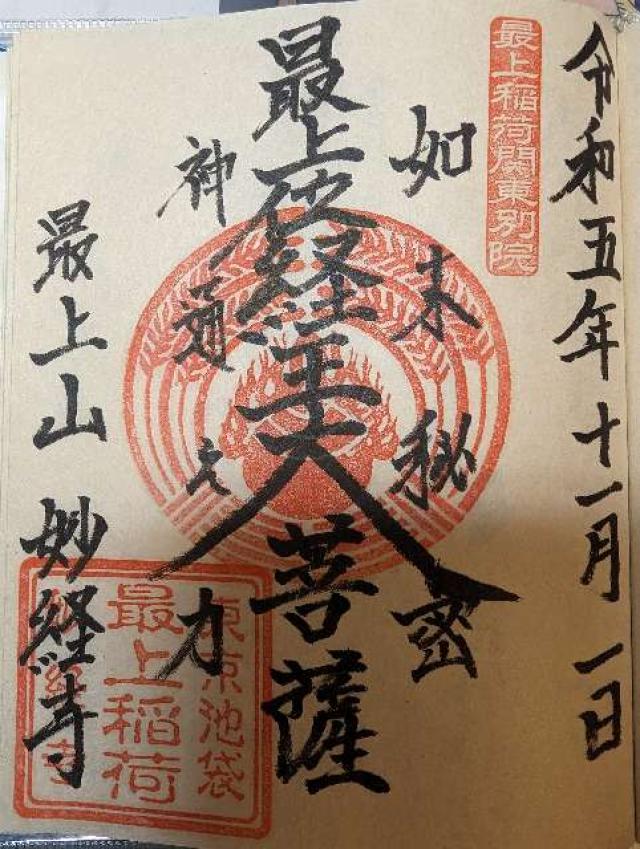 令和五年十一月一日
最上稲荷関東別院
如来秘密
最上位経王大菩薩
神通之力
最上山 妙経寺
東京池袋
最上稲荷
妙経寺